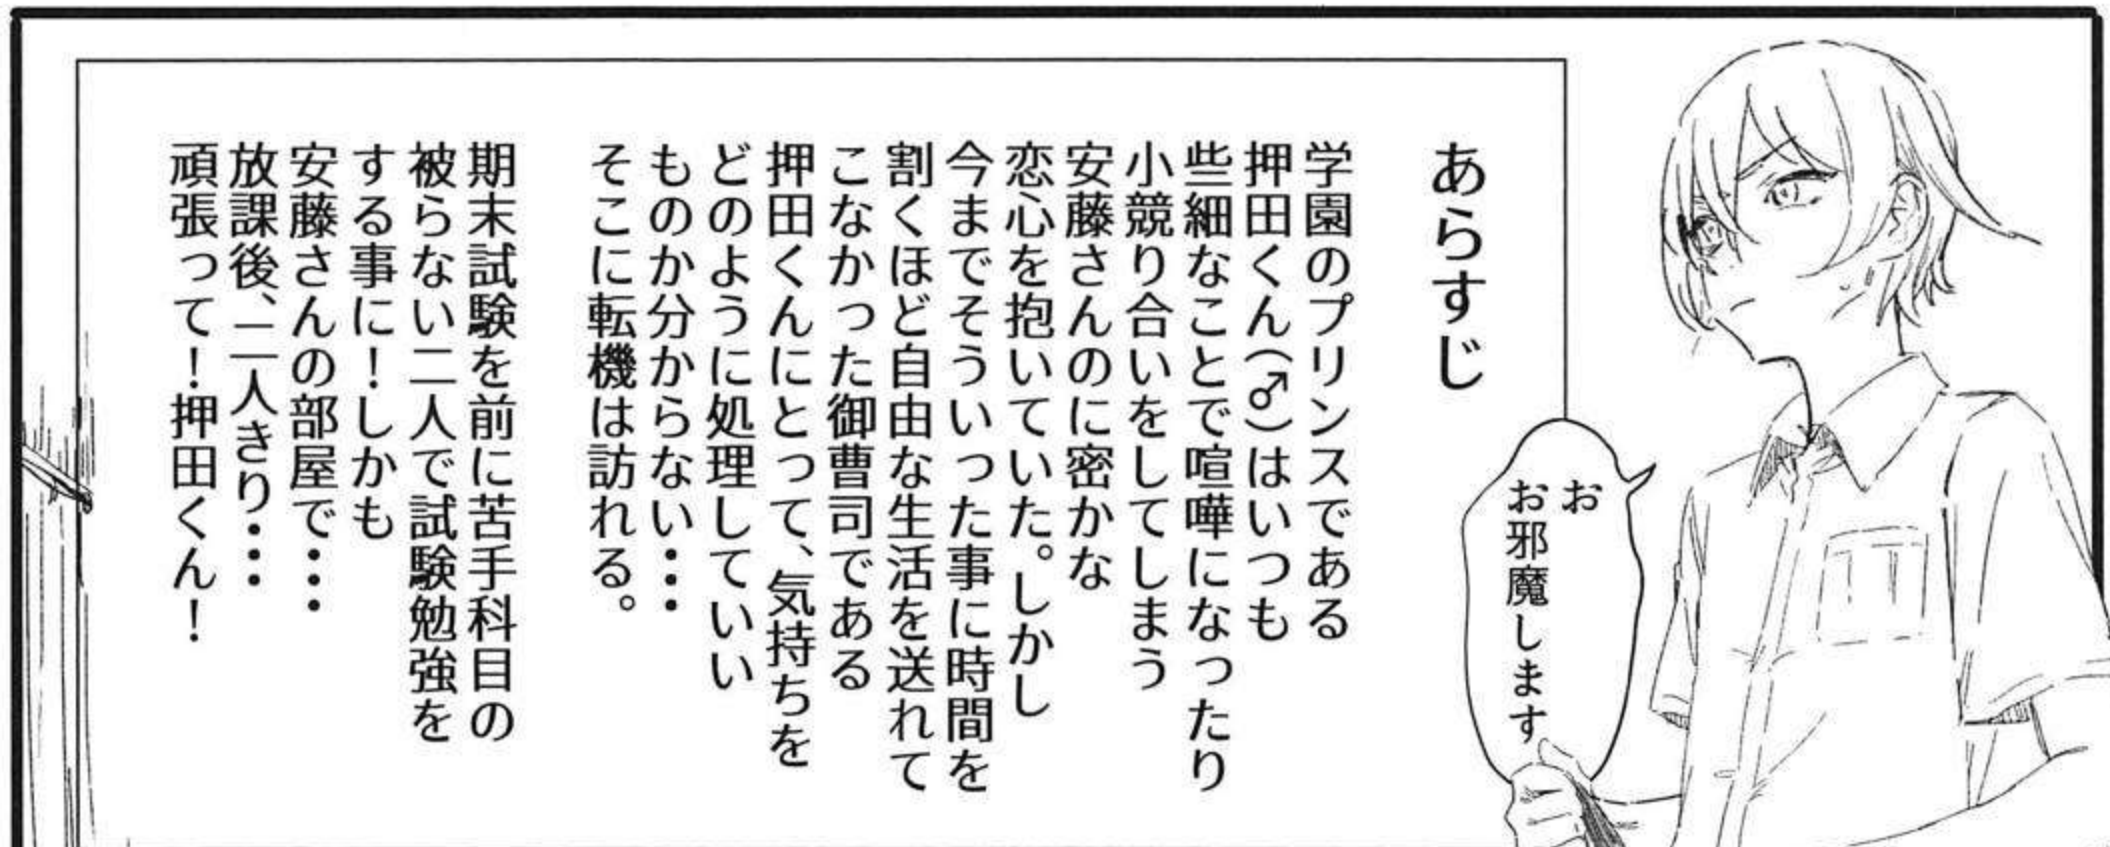 あらすじ
学園のプリンスである
押田くん(♂)はいつも
些細なことで喧嘩になったり
小競り合いをしてしまう
安藤さんのに密かな
恋心を抱いていた。しかし
今までそういった事に時間を
割くほど自由な生活を送れて
こなかった御曹司である
押田くんにとって、気持ちを
どのように処理していい
ものか分からない・・・
そこに転機は訪れる。
期末試験を前に苦手科目の
被らない二人で試験勉強を
する事に！しかも
安藤さんの部屋で・・・
放課後、二人きり・・・
頑張って！押田くん！
お
お邪魔します